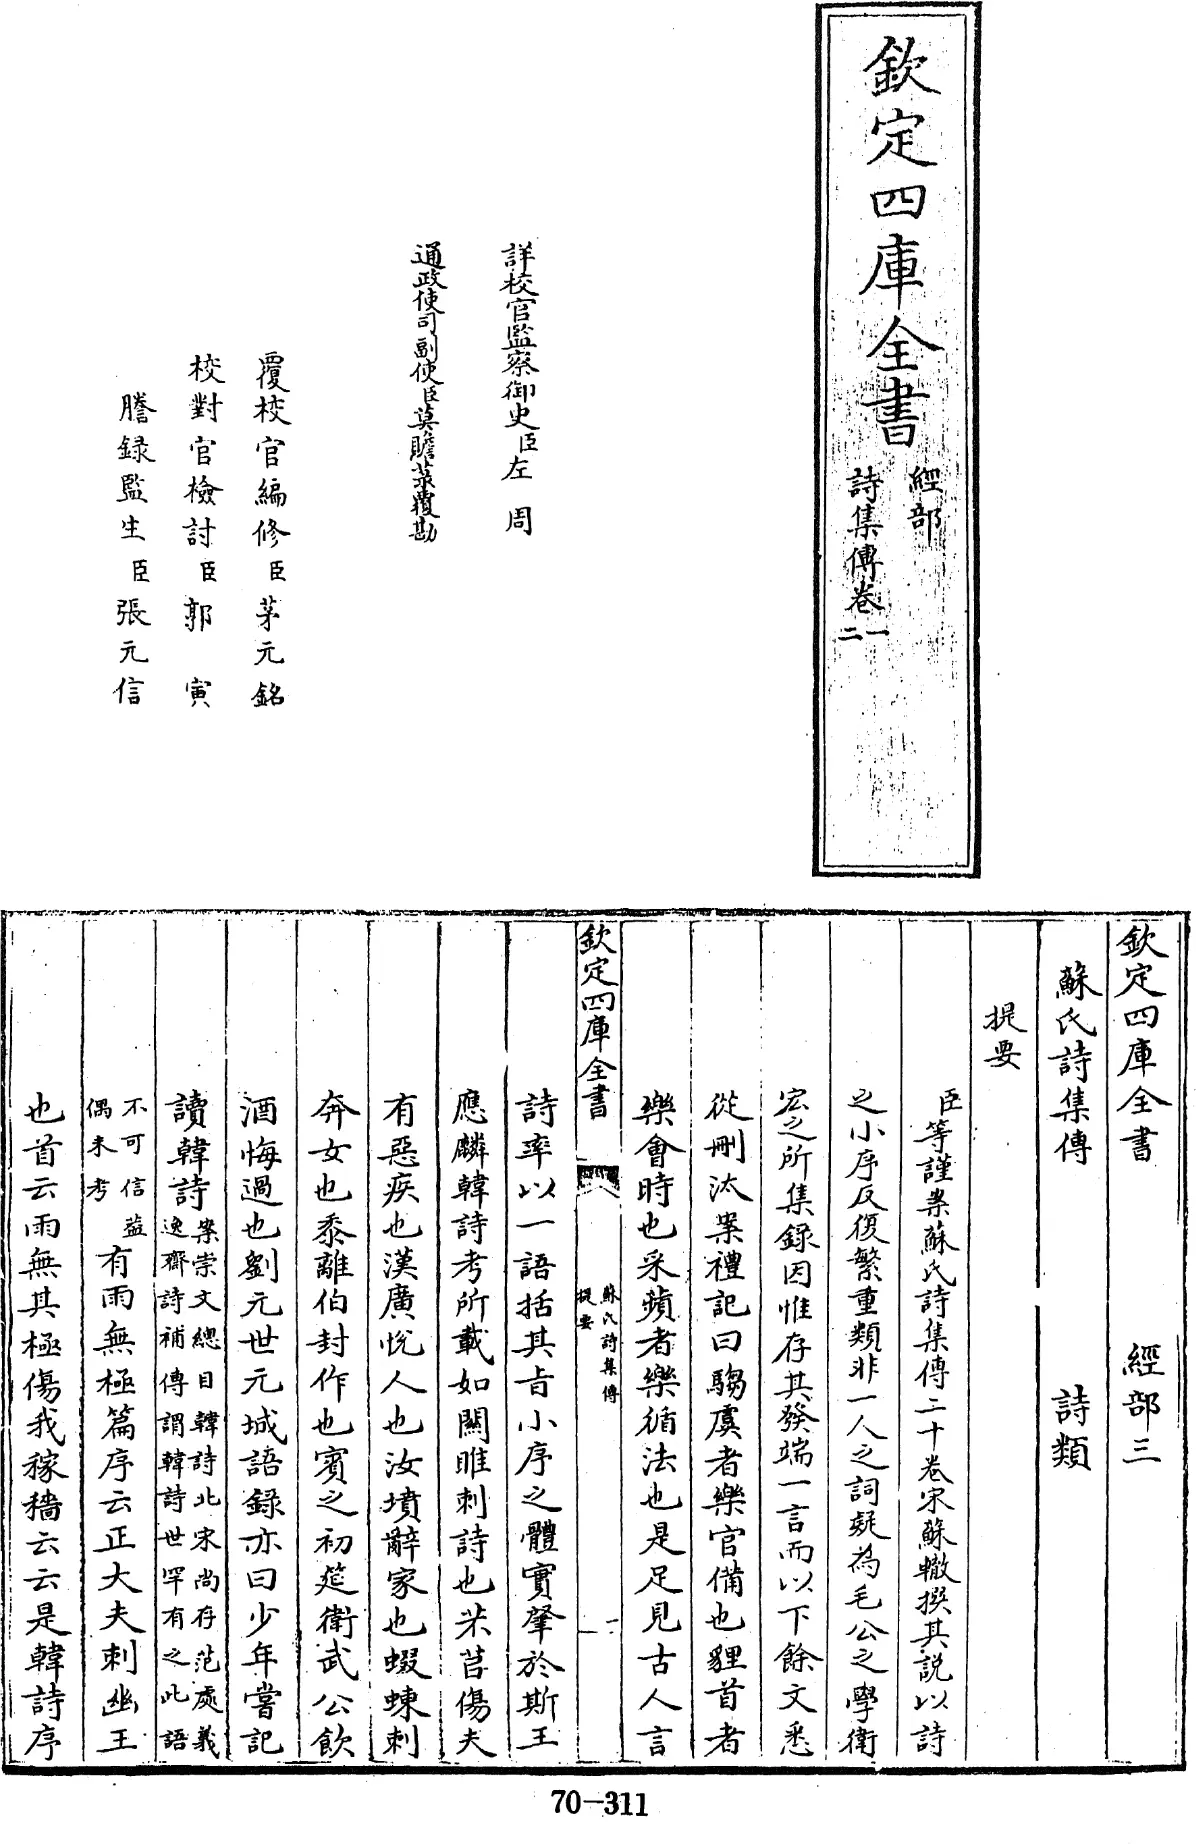 欽定四庫全書
經部
詩集傳卷一
二
詳校官監察御史臣左周
通政使司副使臣莫瞻菉覆勘
覆校官編修臣茅元銘
校對官檢討臣郭寅
謄錄監生臣張元信
欽定四庫全書 經部三
蘇氏詩集傳 詩類
提要
臣等謹案蘇氏詩集傳二十卷宋蘇轍撰其説以詩
之小序反復繁重類非一人之詞疑為毛公之學衛
宏之所集録因惟存其發端一言而以下餘文悉
從刪汰案禮記曰騶虞者樂官備也貍首者
樂會時也采蘋者樂循法也是足見古人言
欽定四庫全書
蘇氏詩集傳
提要
一
詩率以一語括其旨小序之體實肇於斯王
應麟韓詩考所載如關雎刺詩也芣苢傷夫
有惡疾也漢廣悅人也汝墳辭家也蝃蝀刺
奔女也黍離伯封作也賓之初筵衛武公飲
酒悔過也劉元世元城語錄亦曰少年嘗記
讀韓詩案崇文總目韓詩北宋尚存范處義
逸齋詩補傳謂韓詩世罕有之此語
不可信葢
偶未考有雨無極篇序云正大夫刺幽王
也首云雨無其極傷我稼穡云云是韓詩序
70-311